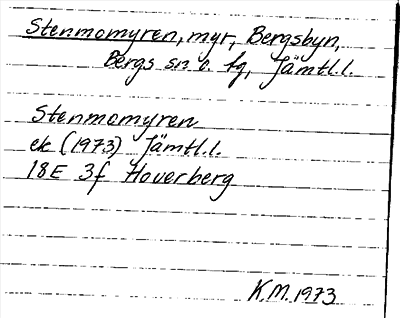 Stenmomyren, myr, Bergsbyn,
Bergs sn o. tg, Jämtl.l.
Stenmomyren
ek (1973) Jämtl.l.
18E 3f Hoverberg
K.M. 1973